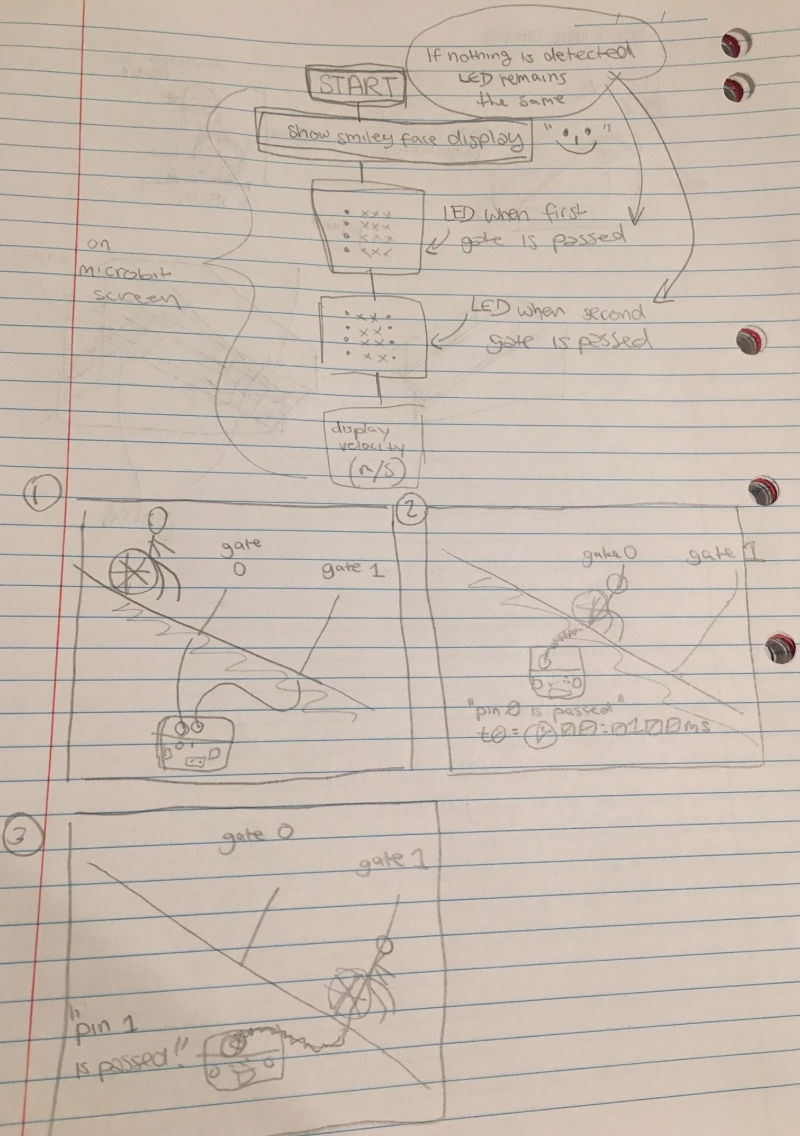 If nothing is detected
LED remains
the same
START
show smiley face display
LED when first
gate is passed
on
microbit
screen
LED when second
gate is passed
display
velocity
(m/s)
1
gate
0
gate 1
2
gate 0
gate 1
"pin 0 is passed"
3
gate 0
gate 1
"pin 1
is passed!"